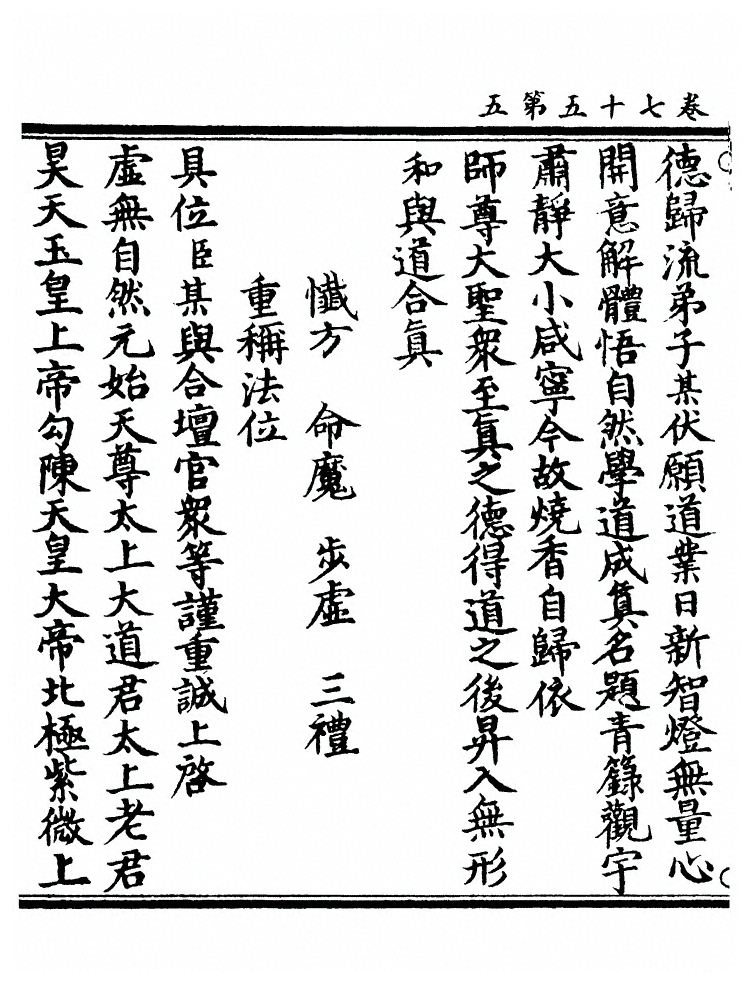 卷七十五第五
德歸流弟子某伏願道業日新智燈無量心
開意解體悟自然學道成真名題青籙觀宇
肅靜大小咸寧今故燒香自歸依
師尊大聖眾至真之德得道之後昇入無形
和與道合真
懺方　命魔　步虛　三禮
重稱法位
具位臣某與合壇官眾等謹重誠上啓
虛無自然元始天尊太上大道君太上老君
昊天玉皇上帝勾陳天皇大帝北極紫微上